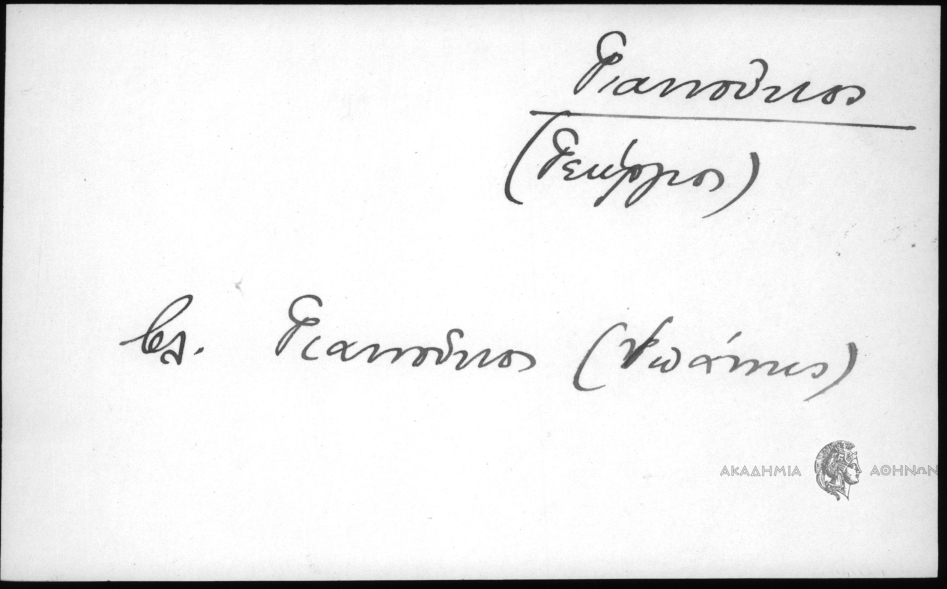 Γιαννοῦκος
(Γεώργιος)
βλ. Γιαννοῦκος (Ἰωάννης)
ΑΚΑΔΗΜΙΑ ΑΘΗΝΩΝ